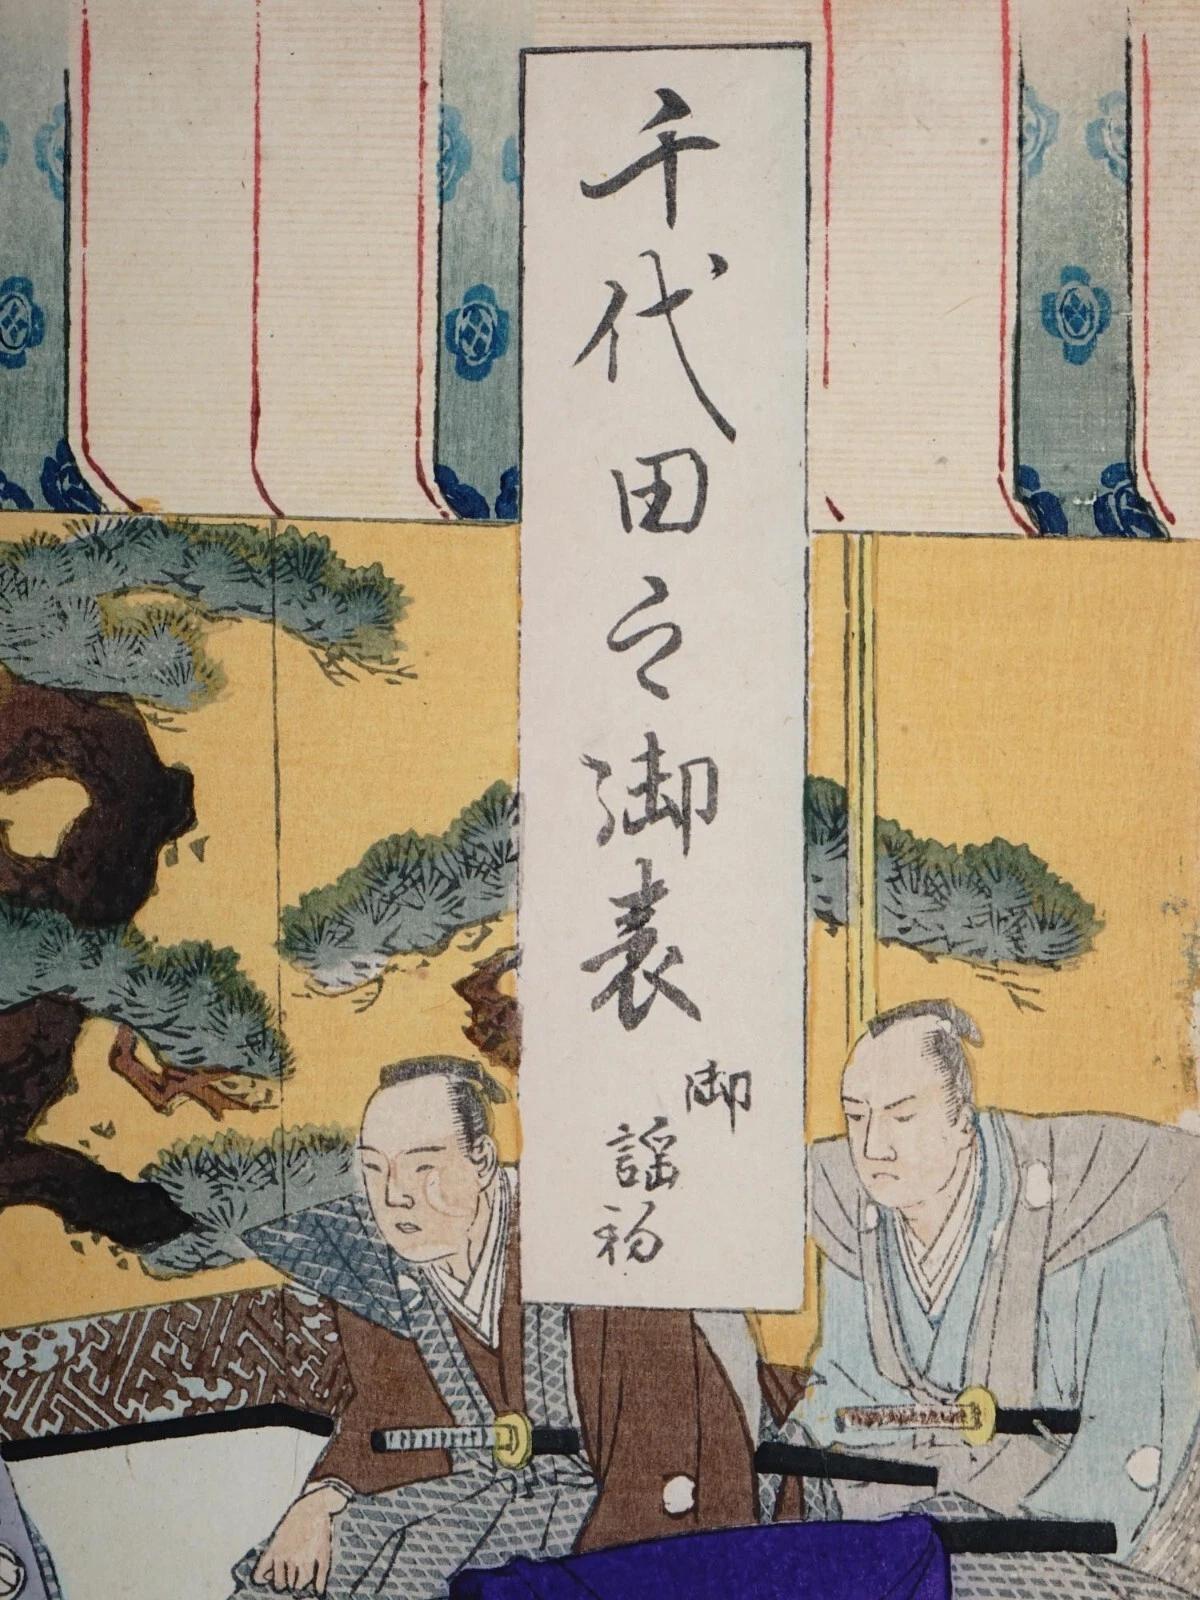 千代田之御表
御
謡初